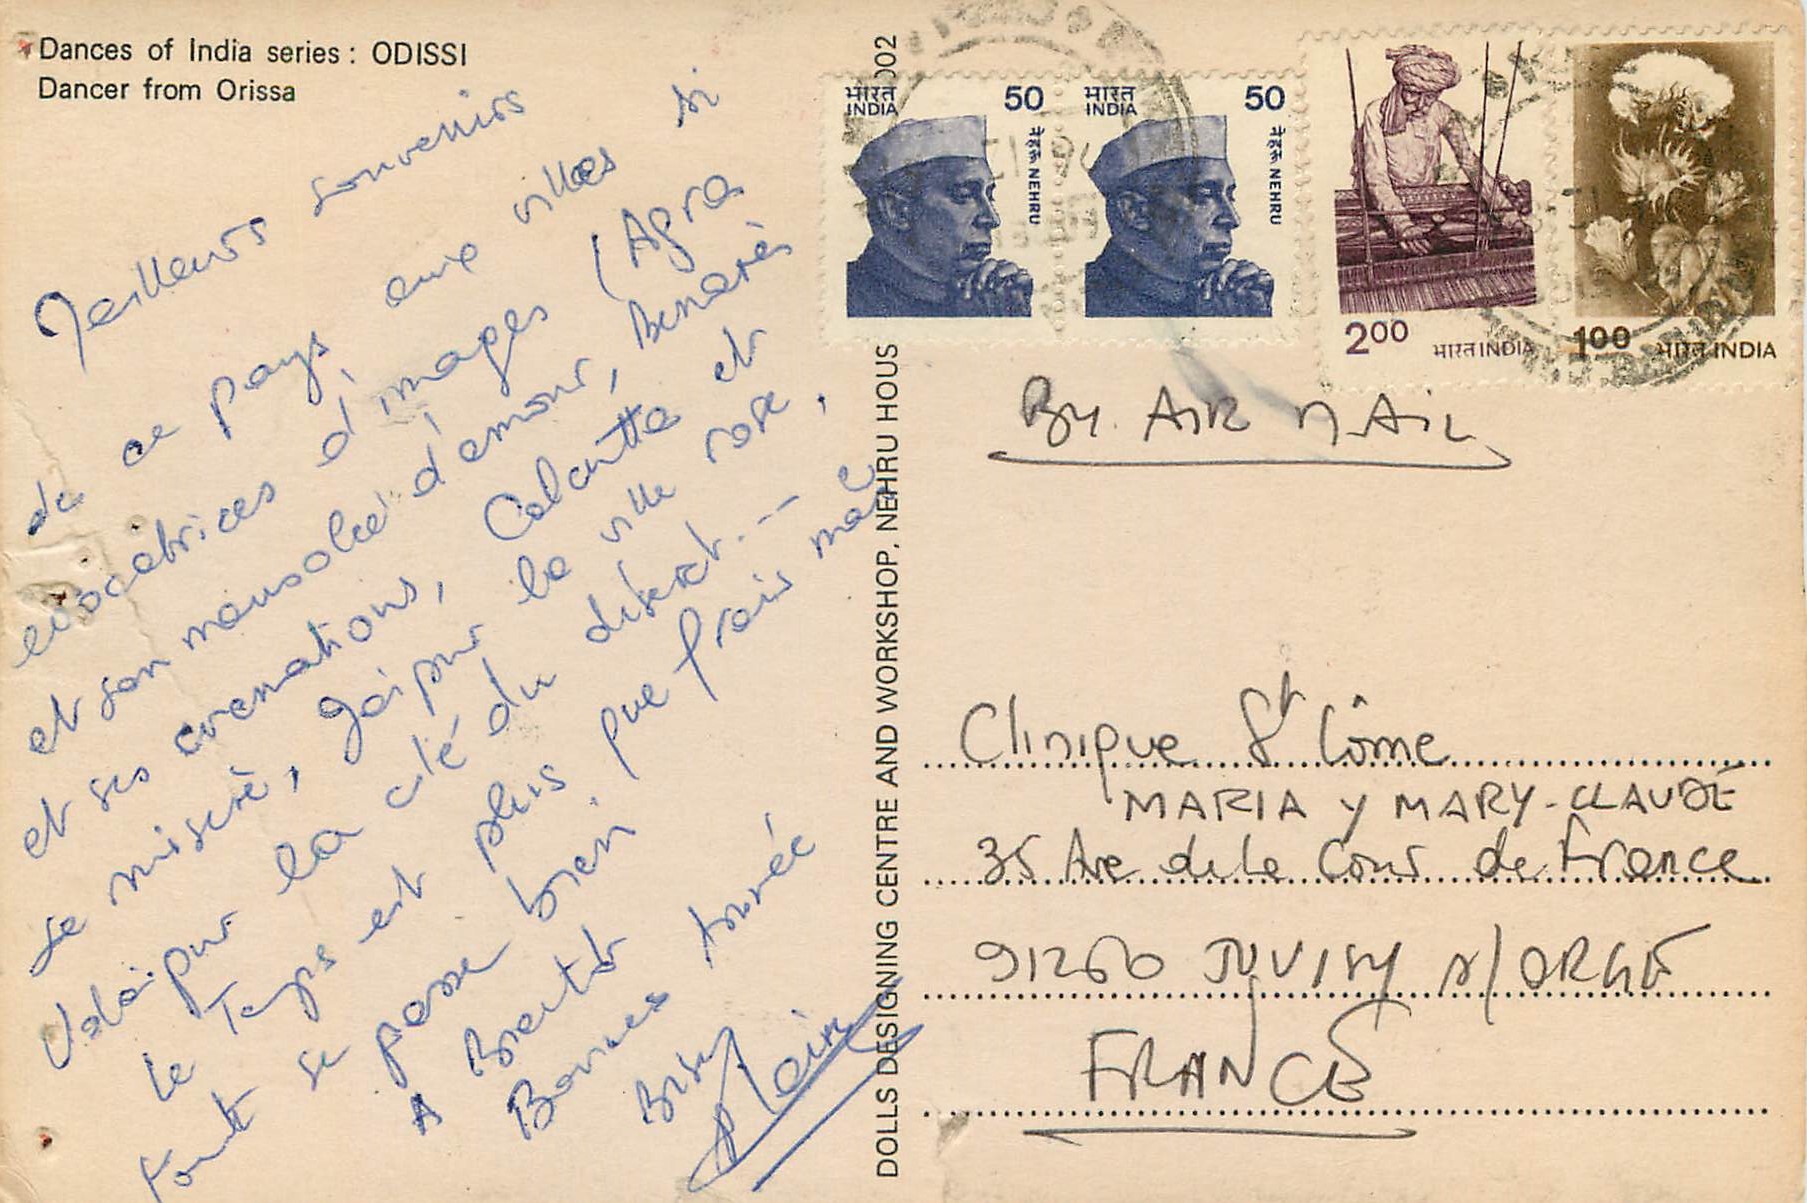 Dances of India series : ODISSI
Dancer from Orissa
Meilleurs souvenirs
de ce pays, aux villes si
évocatrices d'images (Agra
et son mausolée d'amour, Benarès
et ses cremations, Calcutta et
sa misère, Jaipur la ville rose,
Udaipur la cité du désert...
le Temps est plus que frais mais
tout se passe bien.
A Bientôt
Bonnes tournée
Bises
Alain
DOLLS DESIGNING CENTRE AND WORKSHOP, NEHRU HOUS 002
भारत
INDIA
50
नेहरू NEHRU
भारत
INDIA
50
नेहरू NEHRU
2.00 भारत INDIA
1.00 भारत INDIA
By AIR MAIL
Clinique St Côme
MARIA y MARY-CLAUDE
35 Ave de la Cour de France
91260 JUVISY s/ORGE
FRANCE